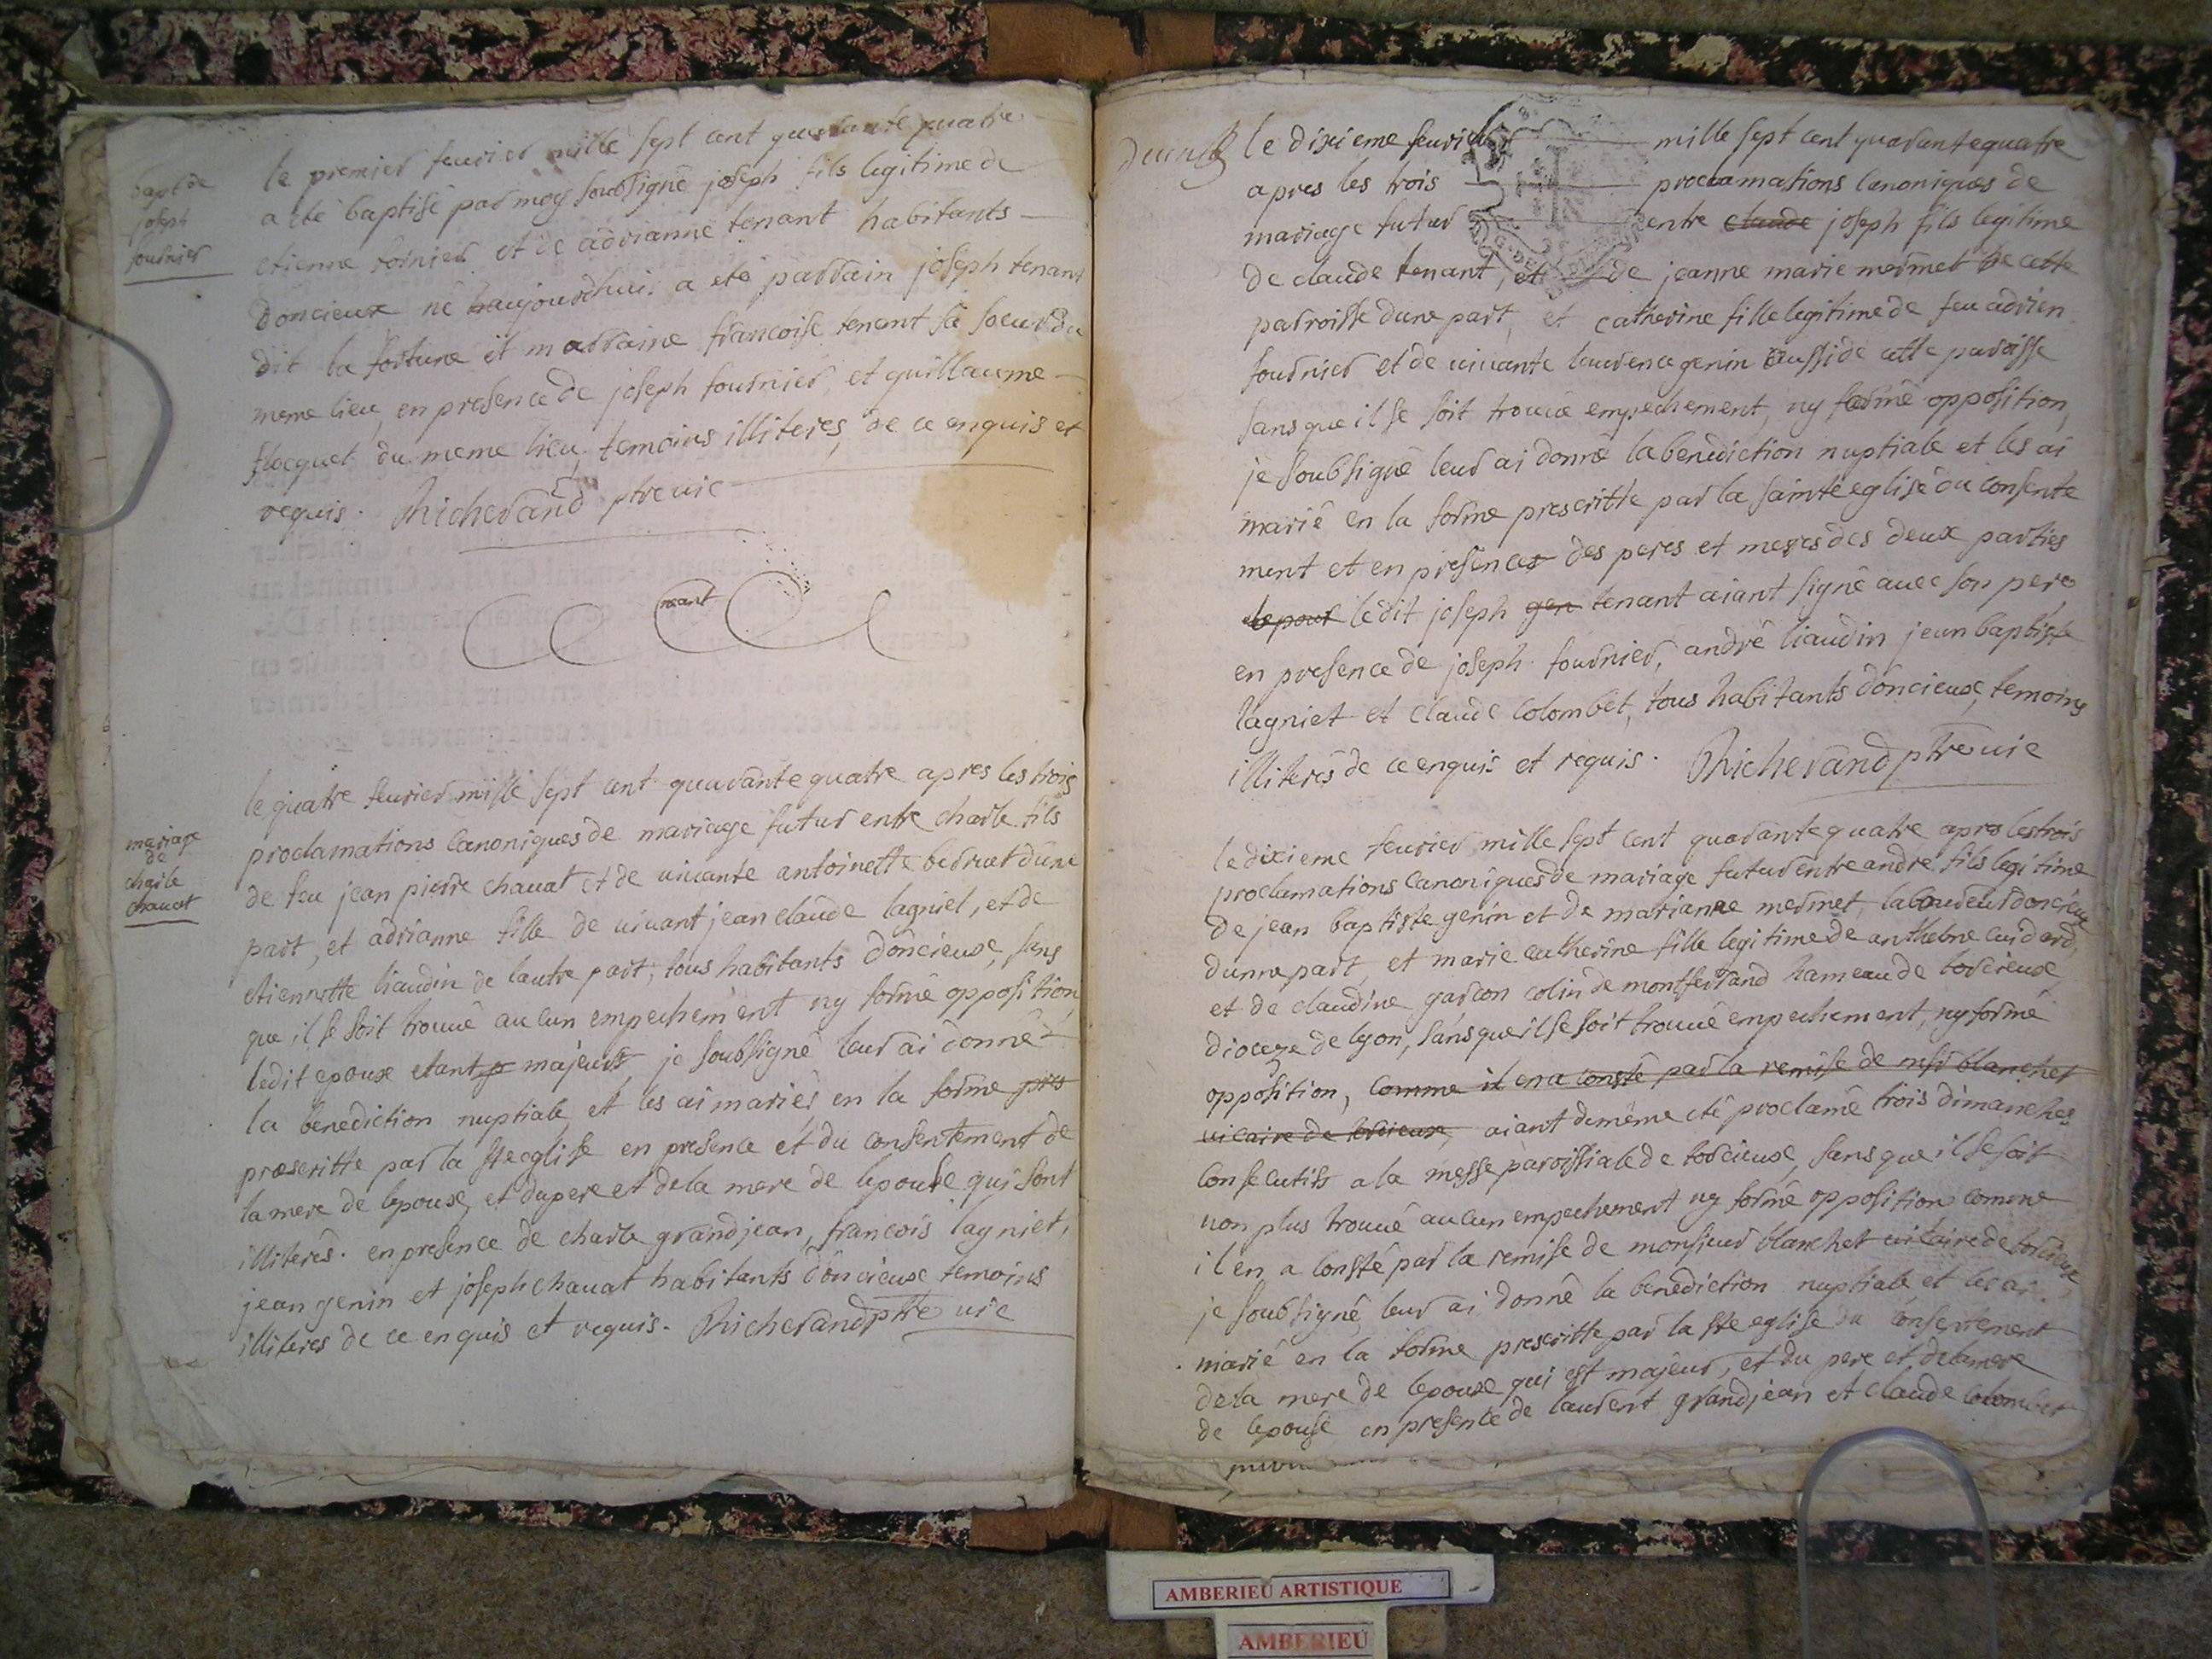 bapt de
joseph
fournier
le premier feurier mille sept cent quarante quatre
a été baptisé par moy soubsigné joseph fils legitime de
etienne fornier et de adrianne tenant habitants
doncieux né haujourdhui a eté parrain joseph tenant
dit la fortune et marraine francoise tenant sa soeur du
meme lieu, en presence de joseph fournier et guillaume
flocquet du meme lieu, temoins illiteres, de ce enquis et
requis. Richerand ptre vic
neant
mariage
de
charle
chavat
le quatre feurier mille sept cent quarante quatre apres les trois
proclamations canoniques de mariage futur entre charle fils
de feu jean pierre chavat et de vivante antoinette bedruet d'une
part, et adrianne fille de vivant jean claude lagniel, et de
etiennette liaudin de lautre part, tous habitants doncieux, sans
que il se soit trouué aucun empechement ny formé opposition
ledit epoux etant majeur, je soubsigné leur ai donné
la benediction nuptiale, et les ai mariés en la forme pres
præscritte par la ste eglise en presence et du consentement de
la mere de lepoux, et du pere et de la mere de lepouse qui sont
illiterés. en presence de charle grandjean, francois lagniet,
jean genin et joseph chauat habitants doncieux temoins
illiteres de ce enquis et requis. Richerand ptre vic
le dixieme feurier mille sept cent quarante quatre
apres les trois proclamations canoniques de
mariage futur entre claude joseph fils legitime
de claude tenant, et de jeanne marie mermet de cette
parroisse dune part, et catherine fille legitime de feu adrien
fournier et de vivante laurence genin aussi de cette paroisse
sans que il se soit trouué empechement, ny formé opposition,
je soubsigné leur ai donné la benediction nuptiale et les ai
marié en la forme prescritte par la sainte eglise du consente
ment et en presence des peres et meres des deux parties
lepour ledit joseph gen tenant aiant signé auec son pere
en presence de joseph fournier, andré liaudin jean baptiste
lagniet et claude colombet, tous habitants doncieux, temoins
illiterés de ce enquis et requis. Richerand ptre vic
le dixieme feurier mille sept cent quarante quatre apres les trois
proclamations canoniques de mariage futur entre andre fils legitime
de jean baptiste genin et de marianne mermet, laboureur doncieux
dunne part, et marie catherine fille legitime de anthelme cuidard,
et de claudine garcon colin de montferrand hameau de torcieux
dioceze de lyon, sans que il se soit trouué empechement, ny formé
opposition, comme il en a consté par la remise de msr blanchet
vicaire de torcieux, aiant de même eté proclamé trois dimanches
consecutifs a la messe paroissiale de torcieux, sans que il se soit
non plus trouué aucun empechement ny formé opposition comme
il en a consté par la remise de monsieur blanchet vicaire de torcieux
je soubsigné leur ai donné la benediction nuptiale, et les ai
marié en la forme prescritte par la ste eglise du consentement
de la mere de lepoux qui est majeur, et du pere et de la mere
de lepouse, en presence de laurent grandjean et claude colombet
AMBERIEU ARTISTIQUE
AMBERIEU